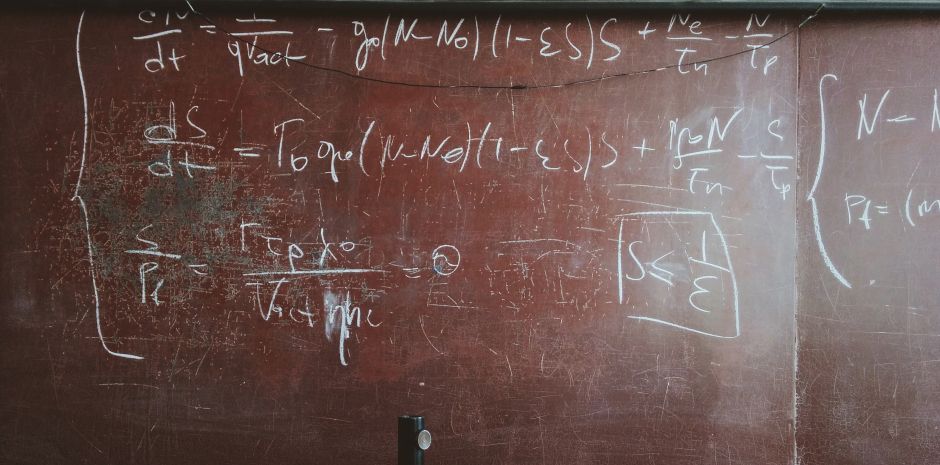 dN/dt = I/qVact - g₀(N-N₀)(1-εS)S + Ne/τn - N/τp
dS/dt = Γ₀g₀(N-N₀)(1-εS)S + N/τn - S/τp
S/Pf = Γτpλ₀/Vactηhc = ②
S ≤ 1/ε
N - N
Pf = (m